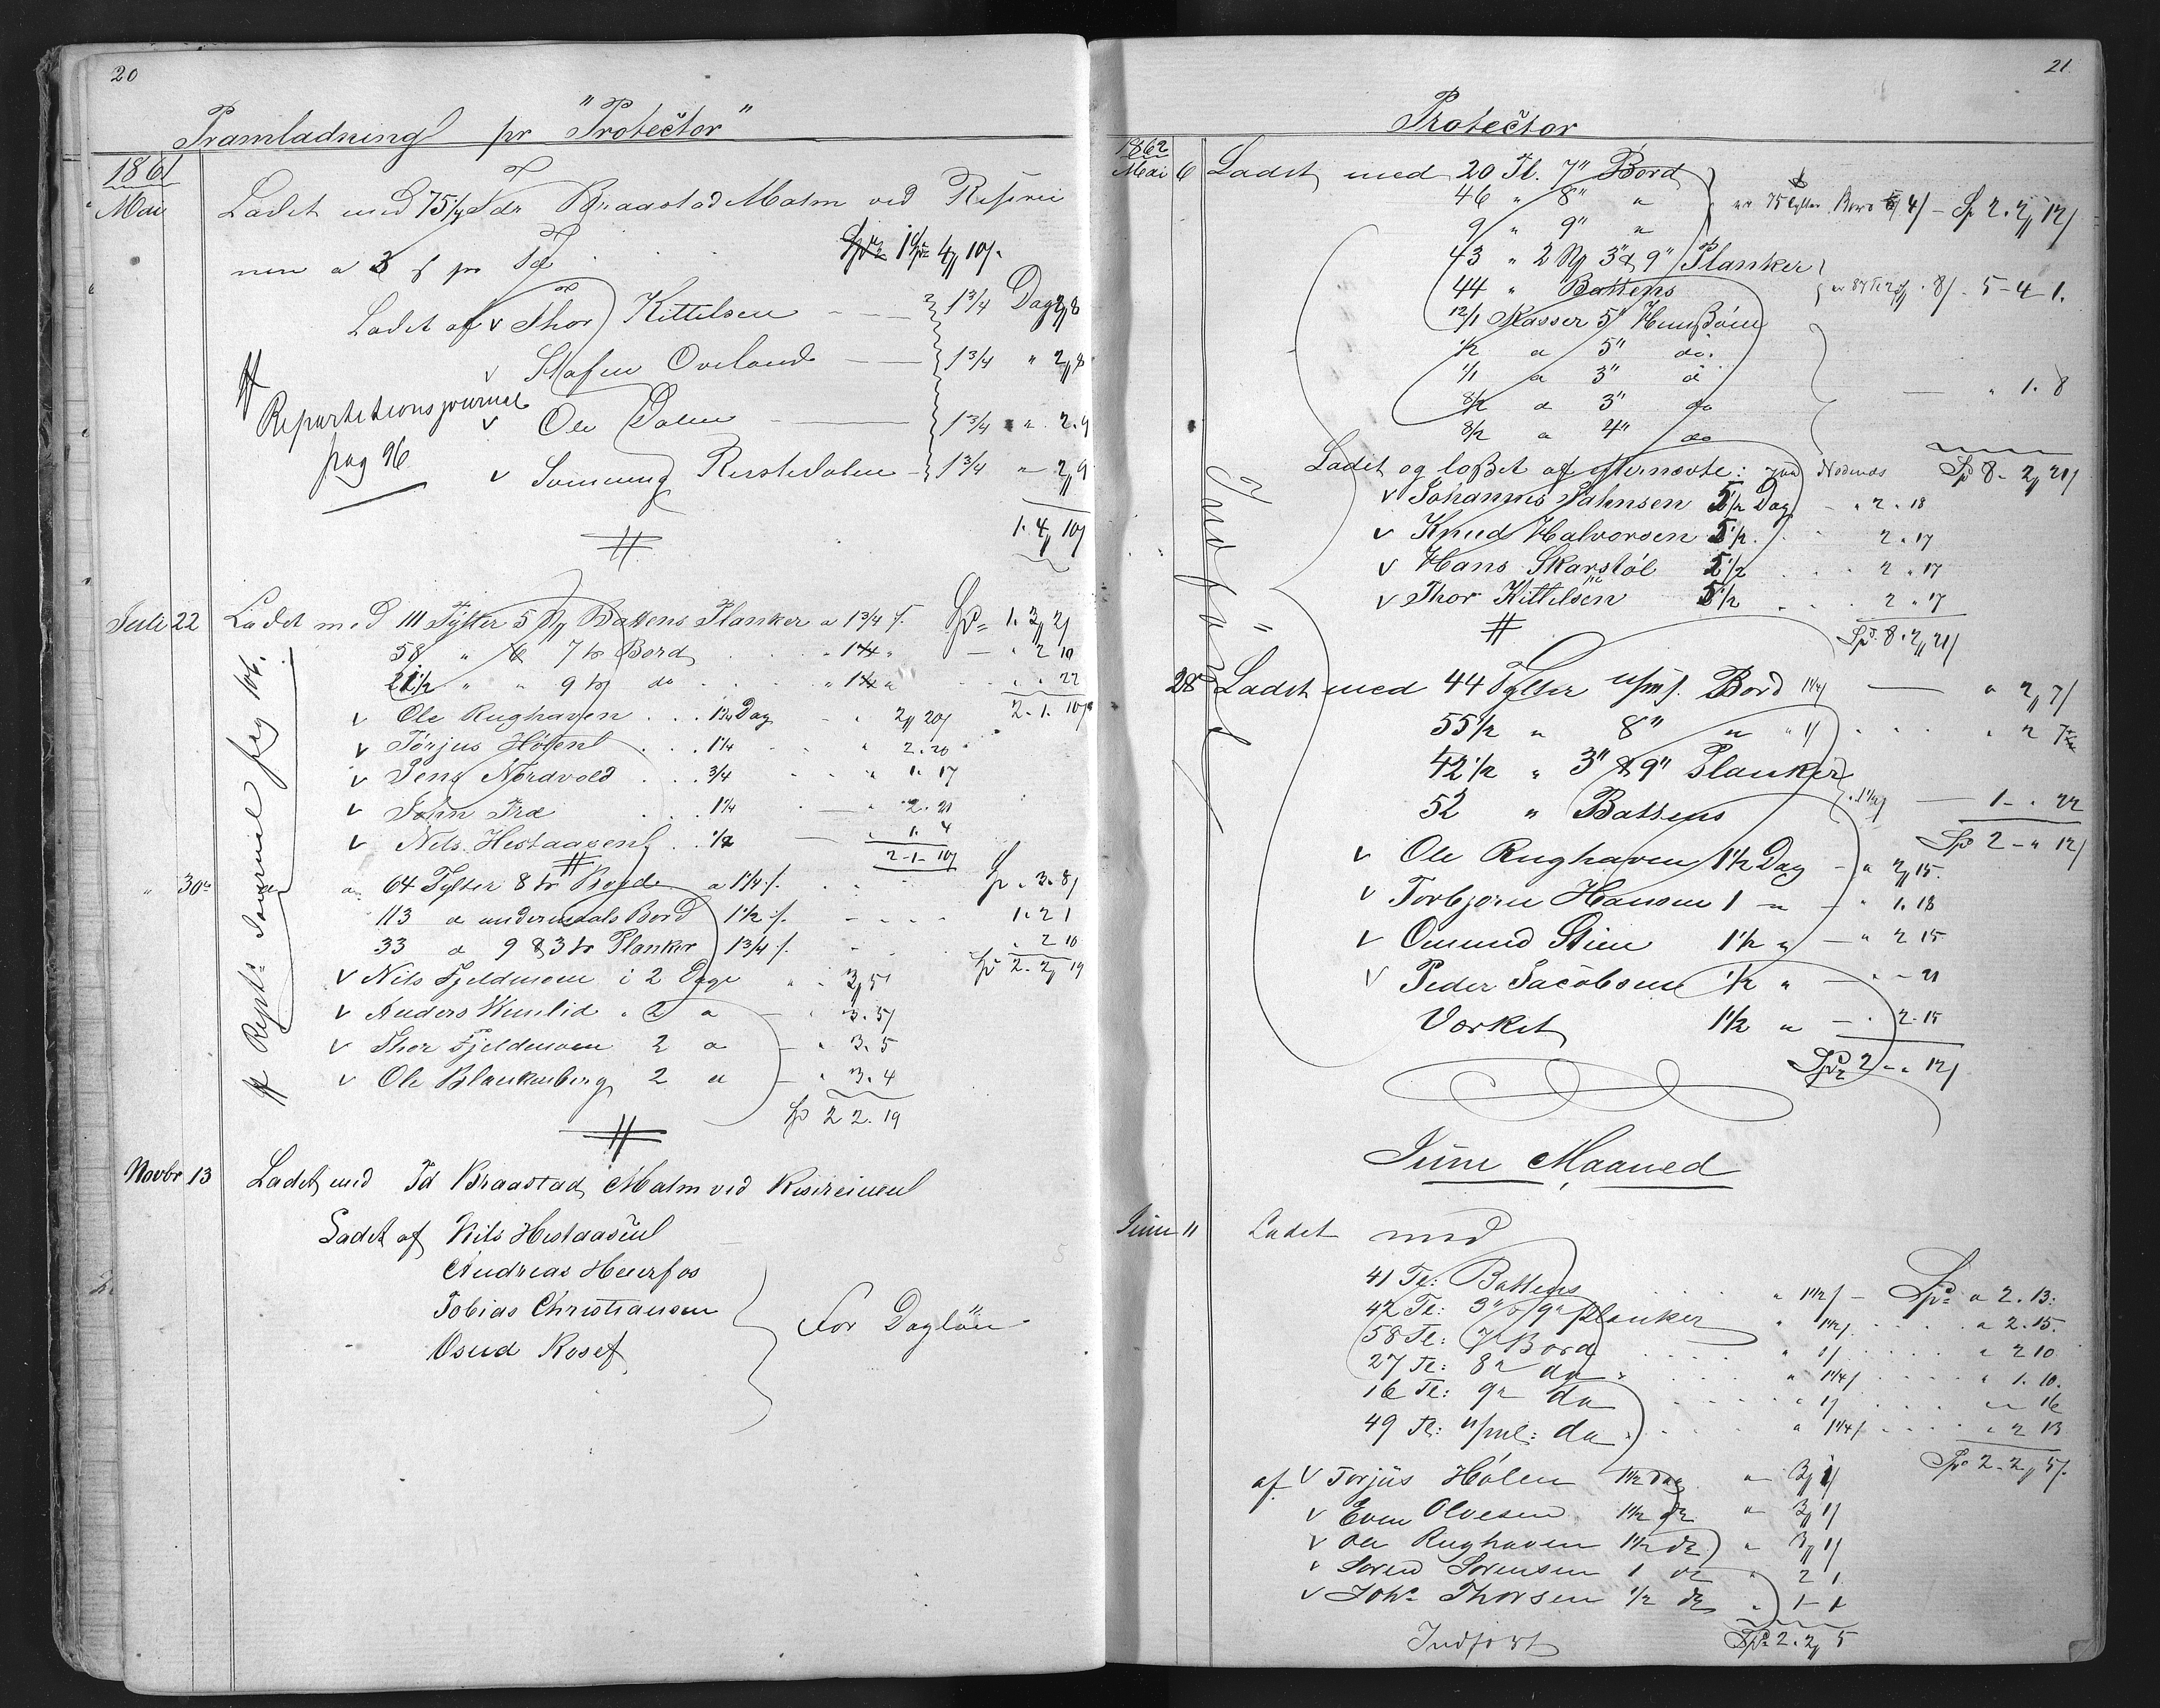 20
Pramladning pr "Protector"
1861
Mai Ladet med 75½ Tdr Braastad Malm ved
nen a 3 s pr Td Spd 1 4 10
Ladet af v Thor Kittilsen 1 3/4 Dag 2 8
v Stafen Oveland — 1 3/4 " 2 8
Repartitionsjournal
v Ole Dalen — 1 3/4 " 2.9
pag 96
v — 1 3/4 " 2 9
1. 4 10
Juli 22 Ladet med 111 Tylter Battens Planker a 1 3/4 Spd 1. 3 2
58 " 7 Bord " 2 10
21½ " " 9 do " 22
v Ole Rughaven . . . Dag 2 20 2. 1. 10
v Torjus Hølen . . . 1¼ " 2. 20
v Jens Nordvold . . . 3/4 " 1. 17
v John Træ . . 1¼ — " 2. 21
v Nils Hestaasen . . ½ — 1. 4
2-1-10
" 30 64 Tylter 8 Bord a 1¼ Sp " 3. 8
113 a undermaals Bord 1½ 1. 2 1
33 a 9 & 3 Planker 1 3/4 " 2 10
Sp 2. 2 19
v Nils Fjeldmoen i 2 Dage " 3 5
v Anders " 2 a — " 3. 5
v Thor Fjeldmoen 2 a — " 3. 5
v Ole Blankenberg 2 a — " 3. 4
Sp 2 2. 19
Rept. Journal pag 106.
Novbr 13 Ladet med Td Braastad Malm ved
Ladet af Nils Hestaasen
Andreas Heierfos
Tobias Christiansen
Osud Rosef
For Dagløn
21
Protector
1862
Mai 6 Ladet med 20 Tl. 7" Bord
46 " 8" "
9 " 9" " 75 Tylter Bord 4 — Sp 2. 2 12
43 " 3" & 9" Planker
44 " Battens 8 . 5-4 1.
12/1 Kasser 5"
½ a 5" do.
1/1 a 3" a
8/2 a 3" do — " 1. 8
8/2 a 4" do
Ladet og losset af efternævte: Spd 8. 2 21
v Johannes Jahnsen 5½ Dag — " 2. 18
v Knud Halvorsen 5½ . . 2. 17
v Hans Skarstøl 5½ . . 2. 17
v Thor Kittilsen 5½ . . . 2. 17
Spd. 8. 2 21
Indført
28 Ladet med 44 Tylter Bord 1¼ — " 2 7
55½ " 8" " " 1 . . . . " 2 7
42½ " 3" & 9" Planker
52 " Battens — 1 - . 22
Spd 2 - " 12
v Ole Rughaven 1½ Dag — " 2 15.
v Torbjørn Hansen 1 " — " 1. 18
v Omund Stien 1½ " — " 2 15
v Peder Jacobsen ½ " — " - 21
Værket 1½ " — . 2. 15
Spd 2 - " 12
Juni Maaned
Juni 11 Ladet med
41 Tl: Battens . . . . " 1½ — Spd " 2. 13:
42 Tl: 3" & 9" Planker " 1½ . . . " 2. 15.
58 Tl: 7" Bord . . . . " 1 . . . . " 2 10
27 Tl: 8" do . . . . " 1¼ . . . . " 1. 10.
16 Tl: 9" do . . . . " 1 . . . . " " 16
49 Tl: do . . . . " 1¼ . . . . " 2 13
Spd 2. 2 5
af v Torjus Hølen 1½ Dag " 3 1
v Even Olvesen 1½ do " 3 1
v Ole Rughaven 1½ do " 3 1
v Søren Sørensen 1 do " 2 1
v Johs Thorsen ½ do " 1 - 1
Indført Spd 2. 2 5